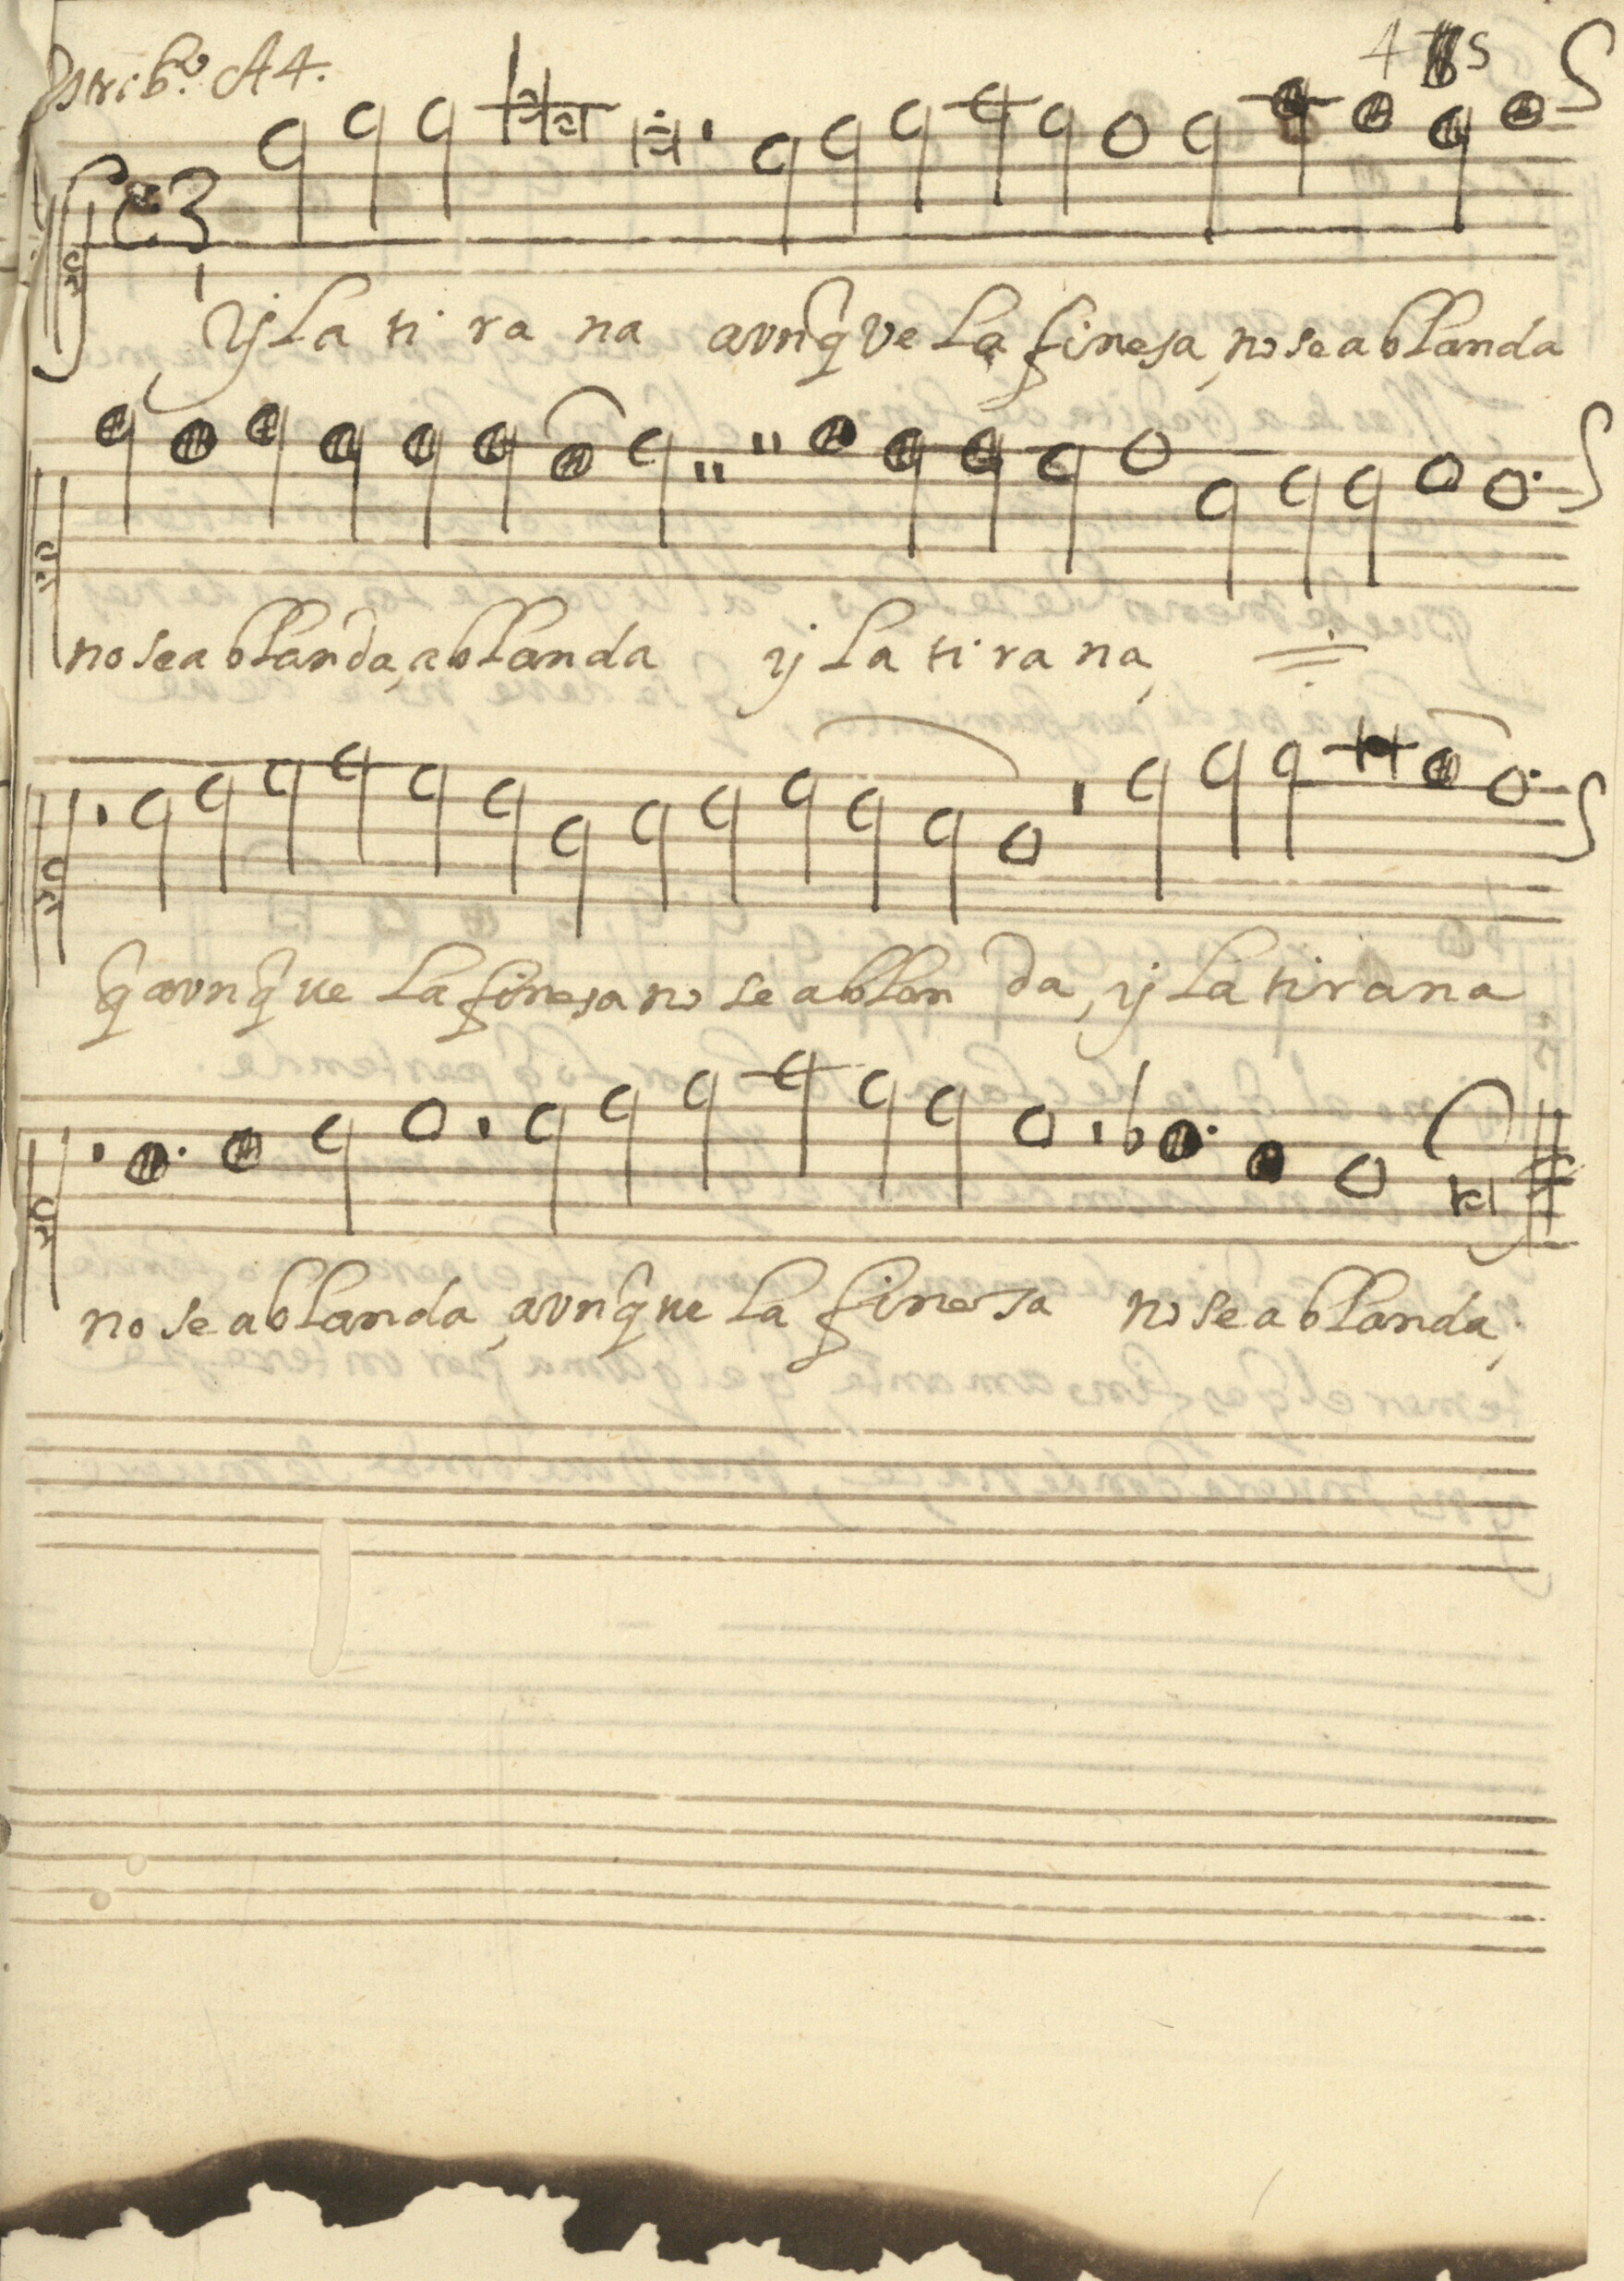 Estribo. A 4.
4 s
3
yj La ti ra na avnq̃ve La finesa, no se a blanda
no se a blanda, a blanda yj La ti ra na,
q̃ avnq̃ ue La finesa no se a blan da, yj La tirana
no se a blanda, avnq̃ ue La finesa no se a blanda,